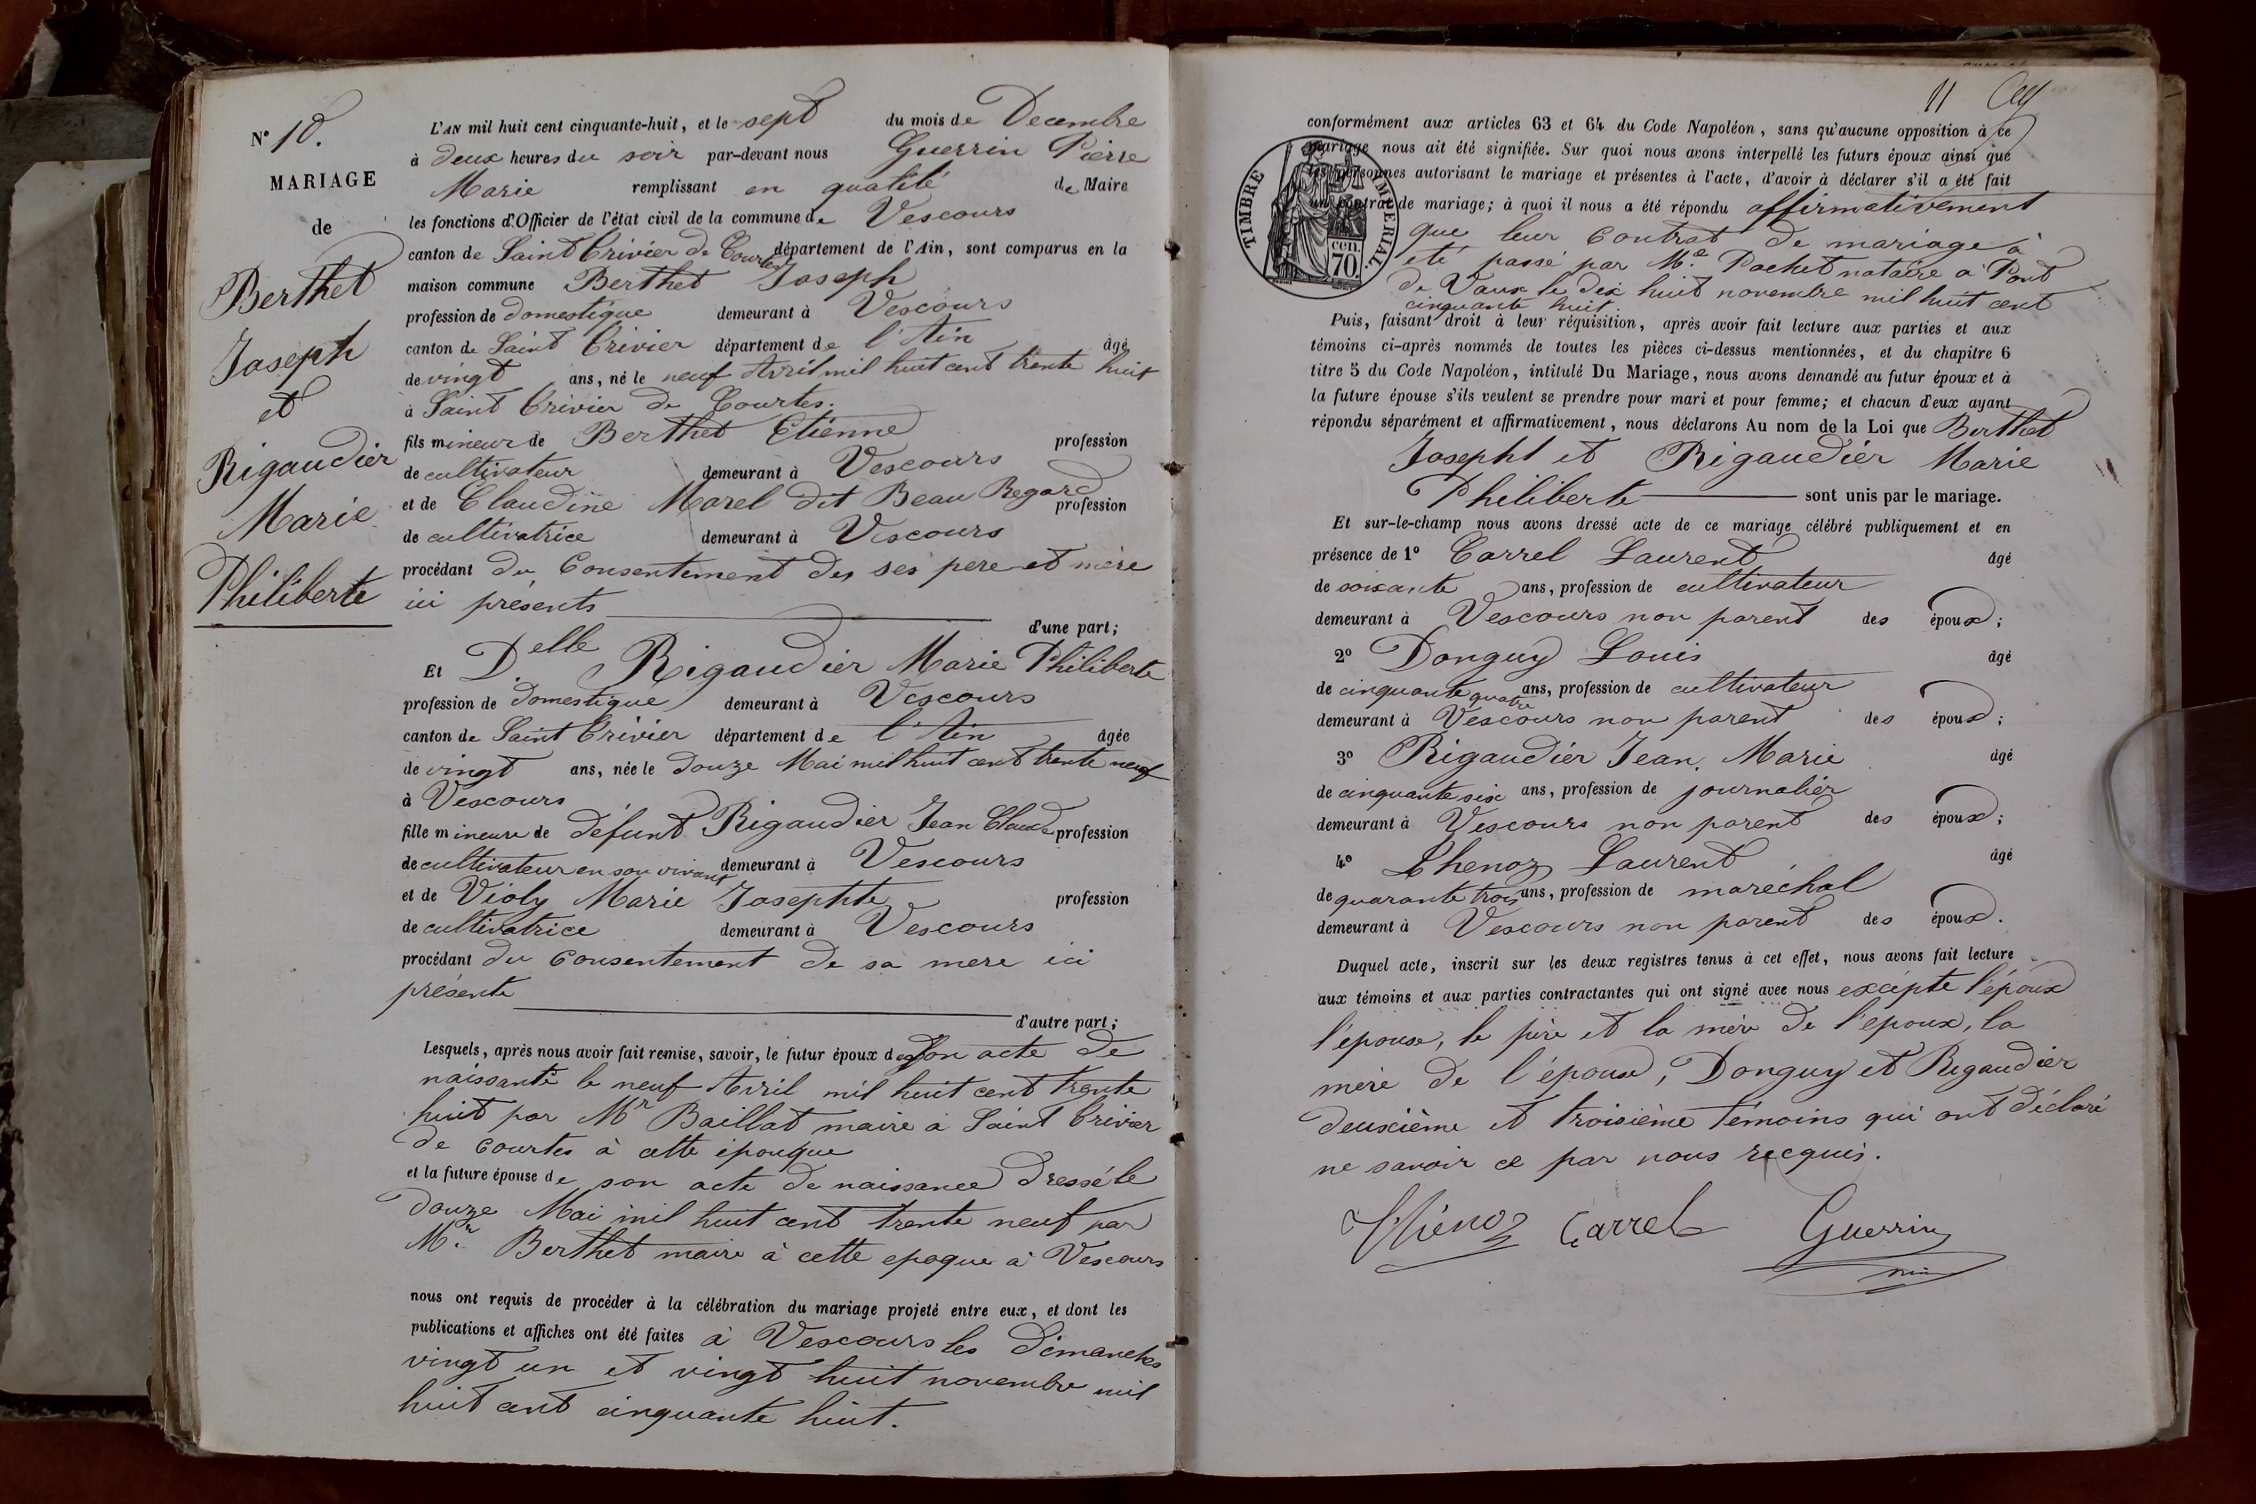 N° 10.
MARIAGE
de
Berthet
Joseph
et
Rigaudier
Marie
Philiberte
L'AN mil huit cent cinquante-huit, et le sept du mois de Decembre
à deux heures du soir par-devant nous Guerrin Pierre
Marie remplissant en qualité de Maire
les fonctions d'Officier de l'état civil de la commune de Vescours
canton de Saint Trivier de Courtes département de l'Ain, sont comparus en la
maison commune Berthet Joseph
profession de domestique demeurant à Vescours
canton de Saint Trivier département de l'Ain âgé
de vingt ans, né le neuf Avril mil huit cent trente huit
à Saint Trivier de Courtes.
fils mineur de Berthet Etienne profession
de cultivateur demeurant à Vescours
et de Claudine Morel dit Beau Regard profession
de cultivatrice demeurant à Vescours
procédant du Consentement des ses père et mère
ici présents
d'une part;
Et D.elle Rigaudier Marie Philiberte
profession de domestique demeurant à Vescours
canton de Saint Trivier département de l'Ain âgée
de vingt ans, née le douze Mai mil huit cent trente neuf
à Vescours
fille mineure de défunt Rigaudier Jean Claude profession
de cultivateur en son vivant demeurant à Vescours
et de Violy Marie Josephte profession
de cultivatrice demeurant à Vescours
procédant du Consentement de sa mere ici
présente
d'autre part;
Lesquels, après nous avoir fait remise, savoir, le futur époux de son acte de
naissante le neuf Avril mil huit cent trente
huit par Mr Baillat maire à Saint Trivier
de Courtes à cette épouque
et la future épouse de son acte de naissance dressé le
douze Mai mil huit cent trente neuf par
Mr. Berthet maire à cette epoque à Vescours
nous ont requis de procéder à la célébration du mariage projeté entre eux, et dont les
publications et affiches ont été faites à Vescours les dimanches
vingt un et vingt huit novembre mil
huit cent cinquante huit.
11
conformément aux articles 63 et 64 du Code Napoléon, sans qu'aucune opposition à ce
mariage nous ait été signifiée. Sur quoi nous avons interpellé les futurs époux ainsi que
les personnes autorisant le mariage et présentes à l'acte, d'avoir à déclarer s'il a été fait
un contrat de mariage; à quoi il nous a été répondu affirmativement
que leur Contrat de mariage à
été passé par Me. Pochet notaire à Pont
de Vaux le dix huit novembre mil huit cent
cinquante huit.
TIMBRE IMPERIAL.
cen.
70.
Puis, faisant droit à leur réquisition, après avoir fait lecture aux parties et aux
témoins ci-après nommés de toutes les pièces ci-dessus mentionnées, et du chapitre 6
titre 5 du Code Napoléon, intitulé Du Mariage, nous avons demandé au futur époux et à
la future épouse s'ils veulent se prendre pour mari et pour femme; et chacun d'eux ayant
répondu séparément et affirmativement, nous déclarons Au nom de la Loi que Berthet
Josepht et Rigaudier Marie
Philiberte sont unis par le mariage.
Et sur-le-champ nous avons dressé acte de ce mariage célébré publiquement et en
présence de 1° Carrel Laurent âgé
de soixante ans, profession de cultivateur
demeurant à Vescours non parent des époux;
2° Donguy Louis âgé
de cinquante quatre ans, profession de cultivateur
demeurant à Vescours non parent des époux;
3° Rigaudier Jean Marie âgé
de cinquante six ans, profession de journalier
demeurant à Vescours non parent des époux;
4° Thenoz Laurent âgé
de quarante trois ans, profession de maréchal
demeurant à Vescours non parent des époux.
Duquel acte, inscrit sur les deux registres tenus à cet effet, nous avons fait lecture
aux témoins et aux parties contractantes qui ont signé avec nous excépte l'époux
l'épouse, le père et la mère de l'époux, la
mère de l'épouse, Donguy et Rigaudier
deuxième et troisième témoins qui ont déclaré
ne savoir ce par nous recquis.
Thénoz Carrel Guerrin